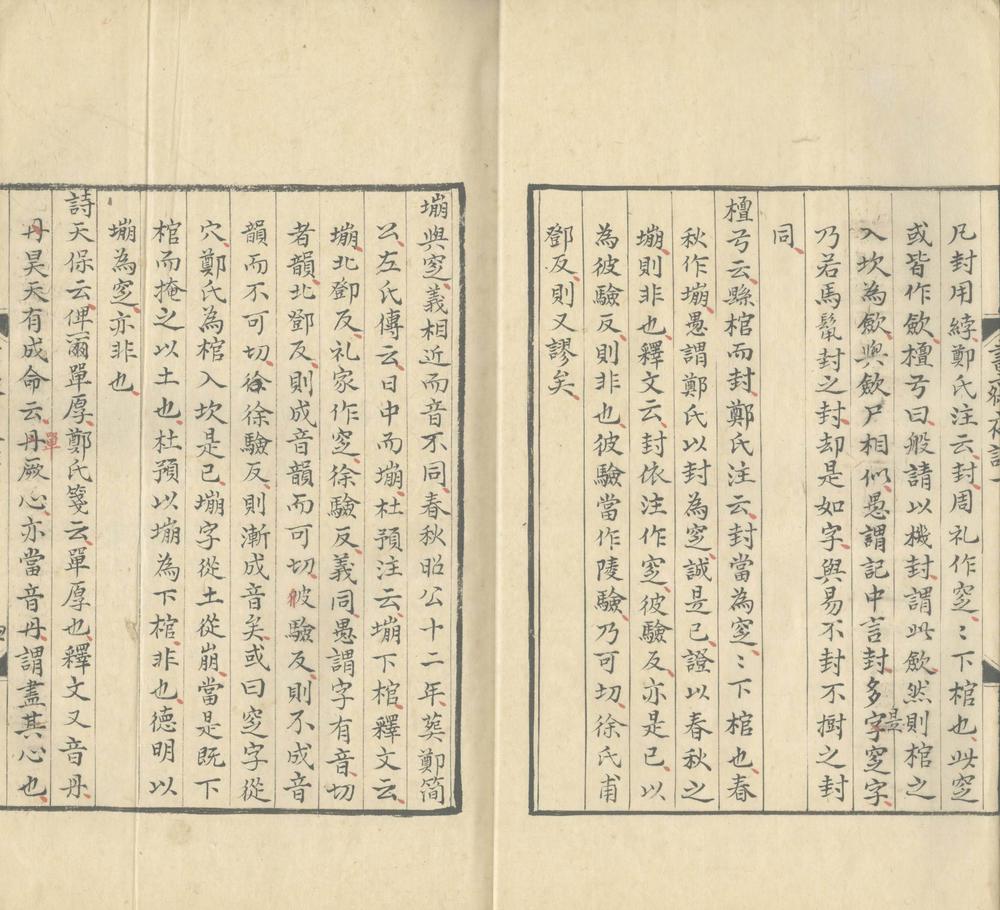 凡封用綍鄭氏注云封周礼作窆〻下棺也此窆
或皆作歛檀弓曰般請以機封謂此歛然則棺之
入坎為歛與歛尸相似愚謂記中言封多字是窆字
乃若馬鬛封之封却是如字與易不封不樹之封
同
檀弓云縣棺而封鄭氏注云封當為窆〻下棺也春
秋作塴愚謂鄭氏以封為窆誠是已證以春秋之
塴則非也釋文云封依注作窆彼驗反亦是已以
為彼驗反則非也彼驗當作陵驗乃可切徐氏甫
鄧反則又謬矣
塴與窆義相近而音不同春秋昭公十二年葬鄭簡
公左氏傳云日中而塴杜預注云塴下棺釋文云
塴北鄧反礼家作窆徐驗反義同愚謂字有音切
者韻北鄧反則成音韻而可切彼驗反則不成音
韻而不可切徐徐驗反則漸成音矣或曰窆字從
穴鄭氏為棺入坎是已塴字從土從崩當是既下
棺而掩之以土也杜預以塴為下棺非也德明以
塴為窆亦非也
詩天保云俾爾單厚鄭氏箋云單厚也釋文又音丹
丹昊天有成命云丹單厥心亦當音丹謂盡其心也